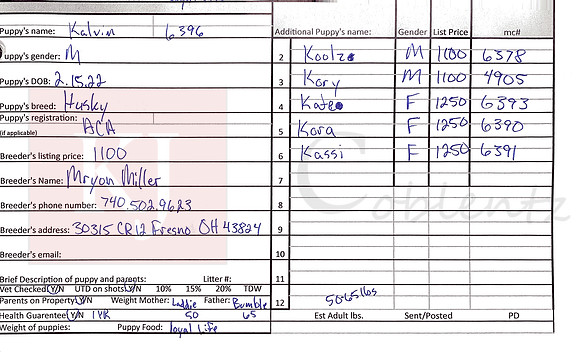 Puppy's name: Kalvin 6396 Additional Puppy's name: Gender List Price mc#
uppy's gender: M 2 Koolz M 1100 6378
Puppy's DOB: 2.15.22 3 Kory M 1100 4905
Puppy's breed: Husky 4 Kate F 1250 6393
Puppy's registration:
(if applicable) ACA 5 Kora F 1250 6390
Breeder's listing price: 1100 6 Kassi F 1250 6391
Breeder's Name: Mryon Miller 7
Breeder's phone number: 740.502.9623 8
Breeder's address: 30315 CR12 Fresno OH 43824 9
Breeder's email: 10
Brief Description of puppy and parents: Litter #: 11
Vet Checked Y/N UTD on shots Y/N 10% 15% 20% TDW
Parents on Property Y/N Weight Mother: Laddie Father: Bumble 12 50-65 lbs
Health Guarentee Y/N 1 YR 50 65 Est Adult lbs. Sent/Posted PD
Weight of puppies: Puppy Food: loyal Life
KJ
Coblentz